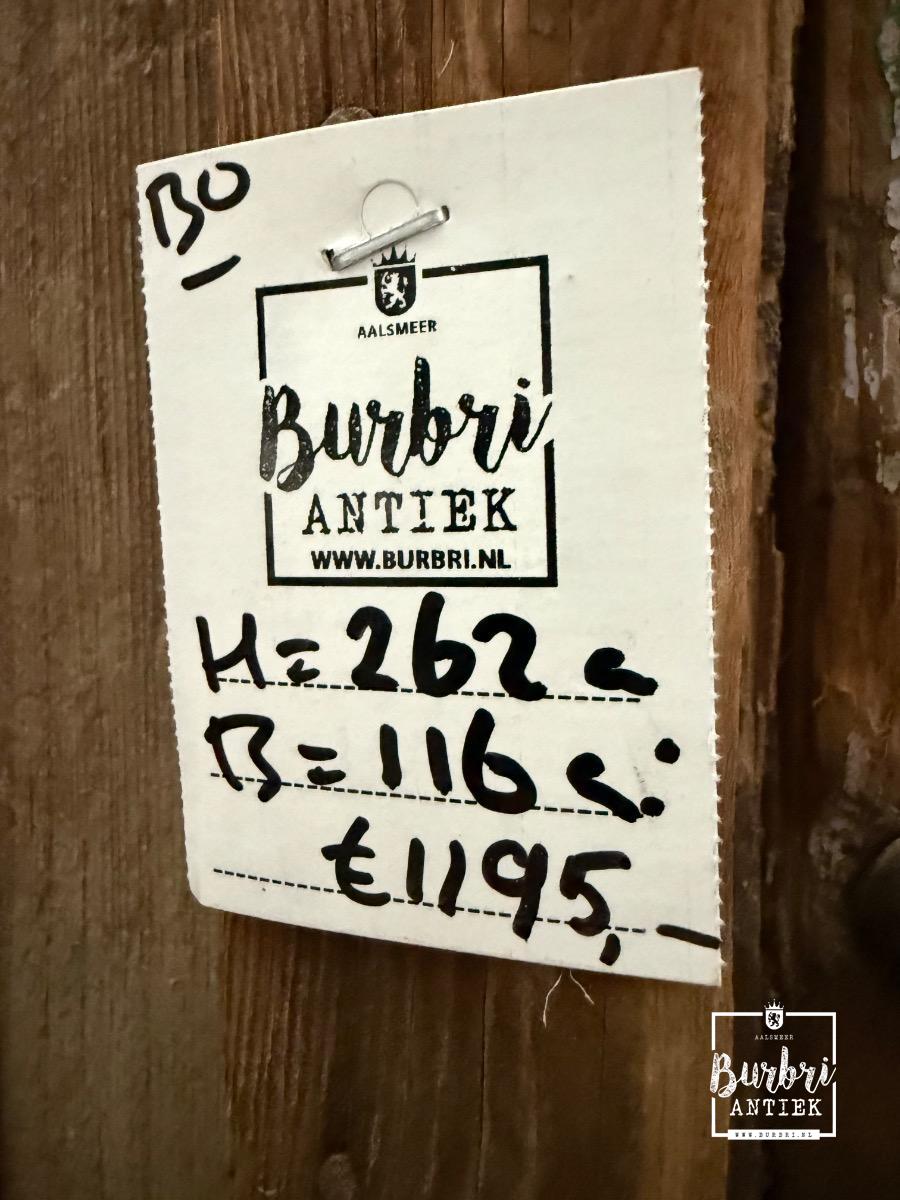 BO
AALSMEER
Burbri
ANTIEK
WWW.BURBRI.NL
H = 262 c
B = 116 c
€1195,-
AALSMEER
Burbri
ANTIEK
WWW.BURBRI.NL